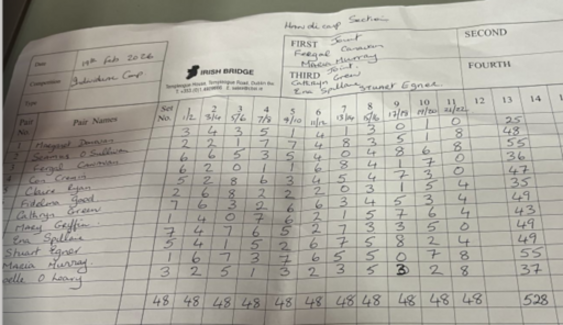 Handicap Section
FIRST Joint
SECOND
Fergal
Maria Murray
THIRD Joint
FOURTH
Cathryn Green
Ena Spillane Stuart Egner
Date 19th Feb 2026
Competition Individual Comp
Type
IRISH BRIDGE
Templeogue House, Templeogue Road, Dublin
Pair No. Pair Names Set No. 1/2 2 3/4 3 5/6 4 7/8 5 9/10 6 11/12 7 13/14 8 15/16 9 17/18 10 19/20 11 21/22 12 13 14
1 Margaret 3 4 3 5 1 4 1 3 0 1 0 25
2 Seamus O Sullivan 2 2 1 7 7 4 8 3 5 1 8 48
Fergal 6 6 5 3 5 4 0 4 8 6 8 55
4 Con Cronin 6 2 0 1 1 6 8 4 1 7 0 36
Claire Ryan 5 2 8 6 3 4 5 4 7 3 0 47
Fidelma Good 2 6 8 2 2 2 0 3 1 5 4 35
Cathryn Green 7 6 3 2 6 6 3 4 5 3 4 49
Mary Griffin 1 4 0 7 6 2 1 5 7 6 4 43
Ena Spillane 7 4 7 6 5 2 7 3 3 5 0 49
Stuart Egner 5 4 1 5 2 6 7 5 8 2 4 49
Maria Murray 1 6 7 3 7 6 5 5 0 7 8 55
O Leary 3 2 5 1 3 2 3 5 3 2 8 37
48 48 48 48 48 48 48 48 48 48 48 528